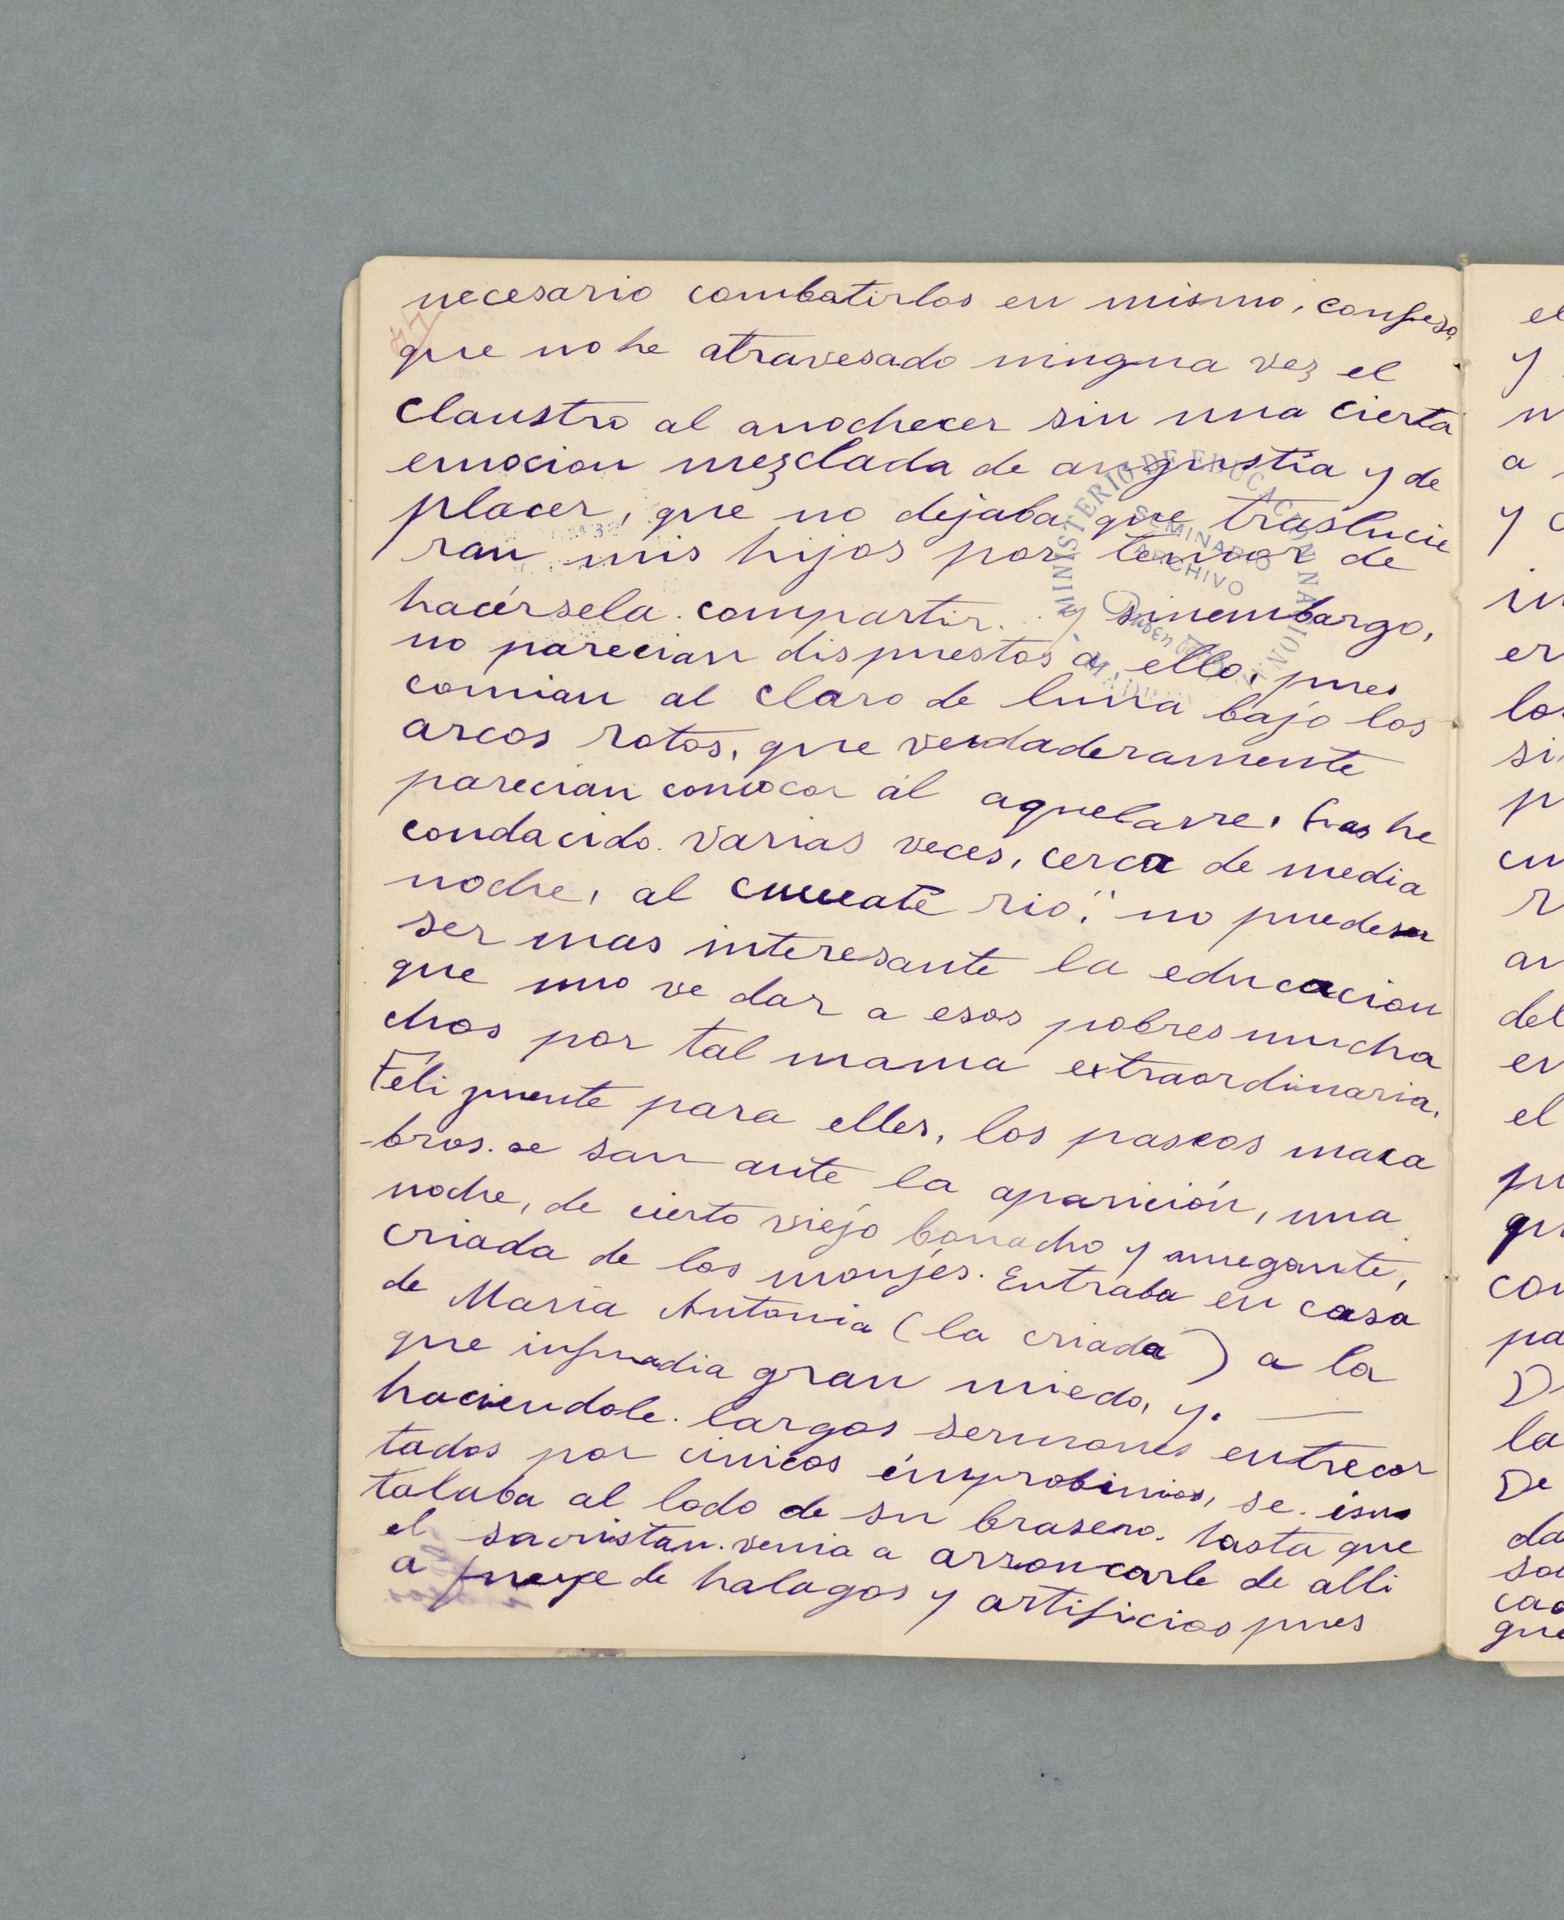 necesario combatirlos en mismo, confieso,
que no he atravesado ninguna vez el
claustro al anochecer sin una cierta
emocion mezclada de angustia y de
placer, que no dejaba que traslucie
ran mis hijos por temor de
hacérsela compartir. Y sinembargo,
no parecian dispuestos a ello, pues
comian al claro de luna bajo los
arcos rotos, que verdaderamente
parecian convocar al aquelarre. he
condacido varias veces, cerca de media
noche, al rio." no puede
ser mas interesante la educacion
que uno ve dar a esos pobres mucha
chos por tal mama extraordinaria.
Felizmente para elles, los paseos maca
bros se san ante la aparición, una
noche, de cierto viejo borracho y
criada de los monjes. Entraba en casa
de Maria Antonia (la criada) a la
que infundia gran miedo, y. —
haciendole largos sermones entrecor
tados por cinicos improbinios, se ins
talaba al lado de su brasero. hasta que
el sacristan venia a arroncarle de alli
a de halagos y artificios pues
MINISTERIO DE EDUCACION NACIONAL - MADRID
SEMINARIO
ARCHIVO
Ruben
el
y
a
y
er
los
si
del
el
con
pa
la
De
da